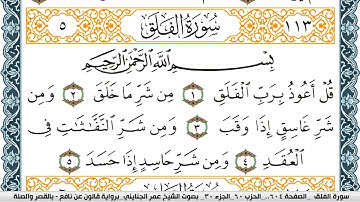 ١١٣ سُورَةُ الْفَلَقِ ٥
بِسْمِ اللَّهِ الرَّحْمَٰنِ الرَّحِيمِ
قُلْ أَعُوذُ بِرَبِّ الْفَلَقِ ١ مِن شَرِّ مَا خَلَقَ ٢ وَمِن
شَرِّ غَاسِقٍ إِذَا وَقَبَ ٣ وَمِن شَرِّ النَّفَّٰثَٰتِ فِى
الْعُقَدِ ٤ وَمِن شَرِّ حَاسِدٍ إِذَا حَسَدَ ٥
سورة الفلق ..الصفحة ٦٠٤.. الحزب ٦٠ الجزء ٣٠ بصوت الشيخ عمر الجنايني برواية قالون عن نافع - بالقصر والصلة